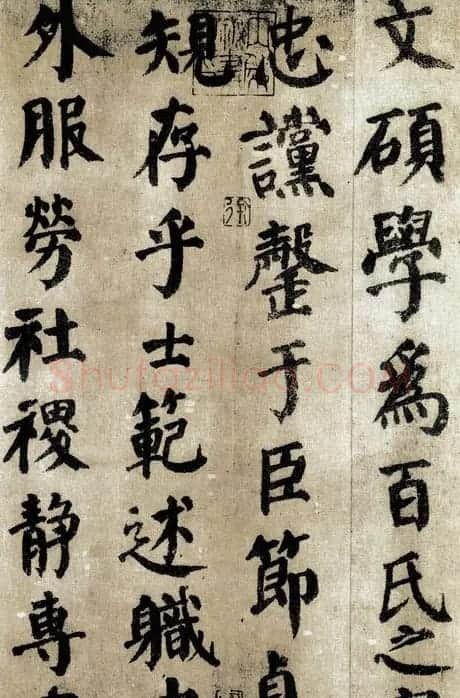 文碩學爲百氏之
忠讜罄于臣節貞
規存乎士範述職
外服勞社稷静專
Shufaziliao.COM